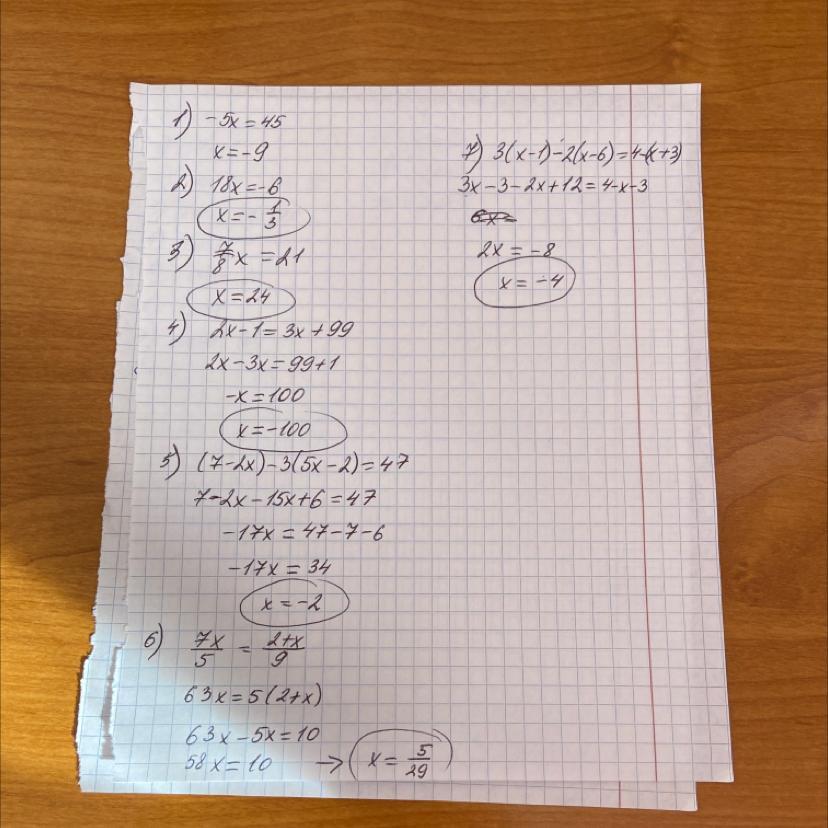 1) -5x = 45
x = -9
2) 18x = -6
x = - 1/3
3) 7/8 x = 21
x = 24
4) 2x - 1 = 3x + 99
2x - 3x = 99 + 1
-x = 100
x = -100
5) (7 - 2x) - 3(5x - 2) = 47
7 - 2x - 15x + 6 = 47
-17x = 47 - 7 - 6
-17x = 34
x = -2
6) 7x/5 = 2+x/9
63x = 5(2+x)
63x - 5x = 10
58x = 10 → x = 5/29
7) 3(x-1) - 2(x-6) = 4-(x+3)
3x - 3 - 2x + 12 = 4 - x - 3
2x = -8
x = -4